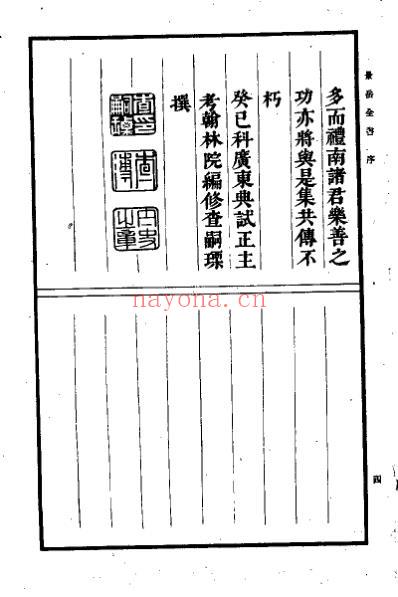 景岳全書 序
多而禮南諸君樂善之
功亦將與是集共傳不
朽
癸巳科廣東典試正主
考翰林院編修查嗣瑮
撰
查印嗣瑮
查浦
四
nayona.cn